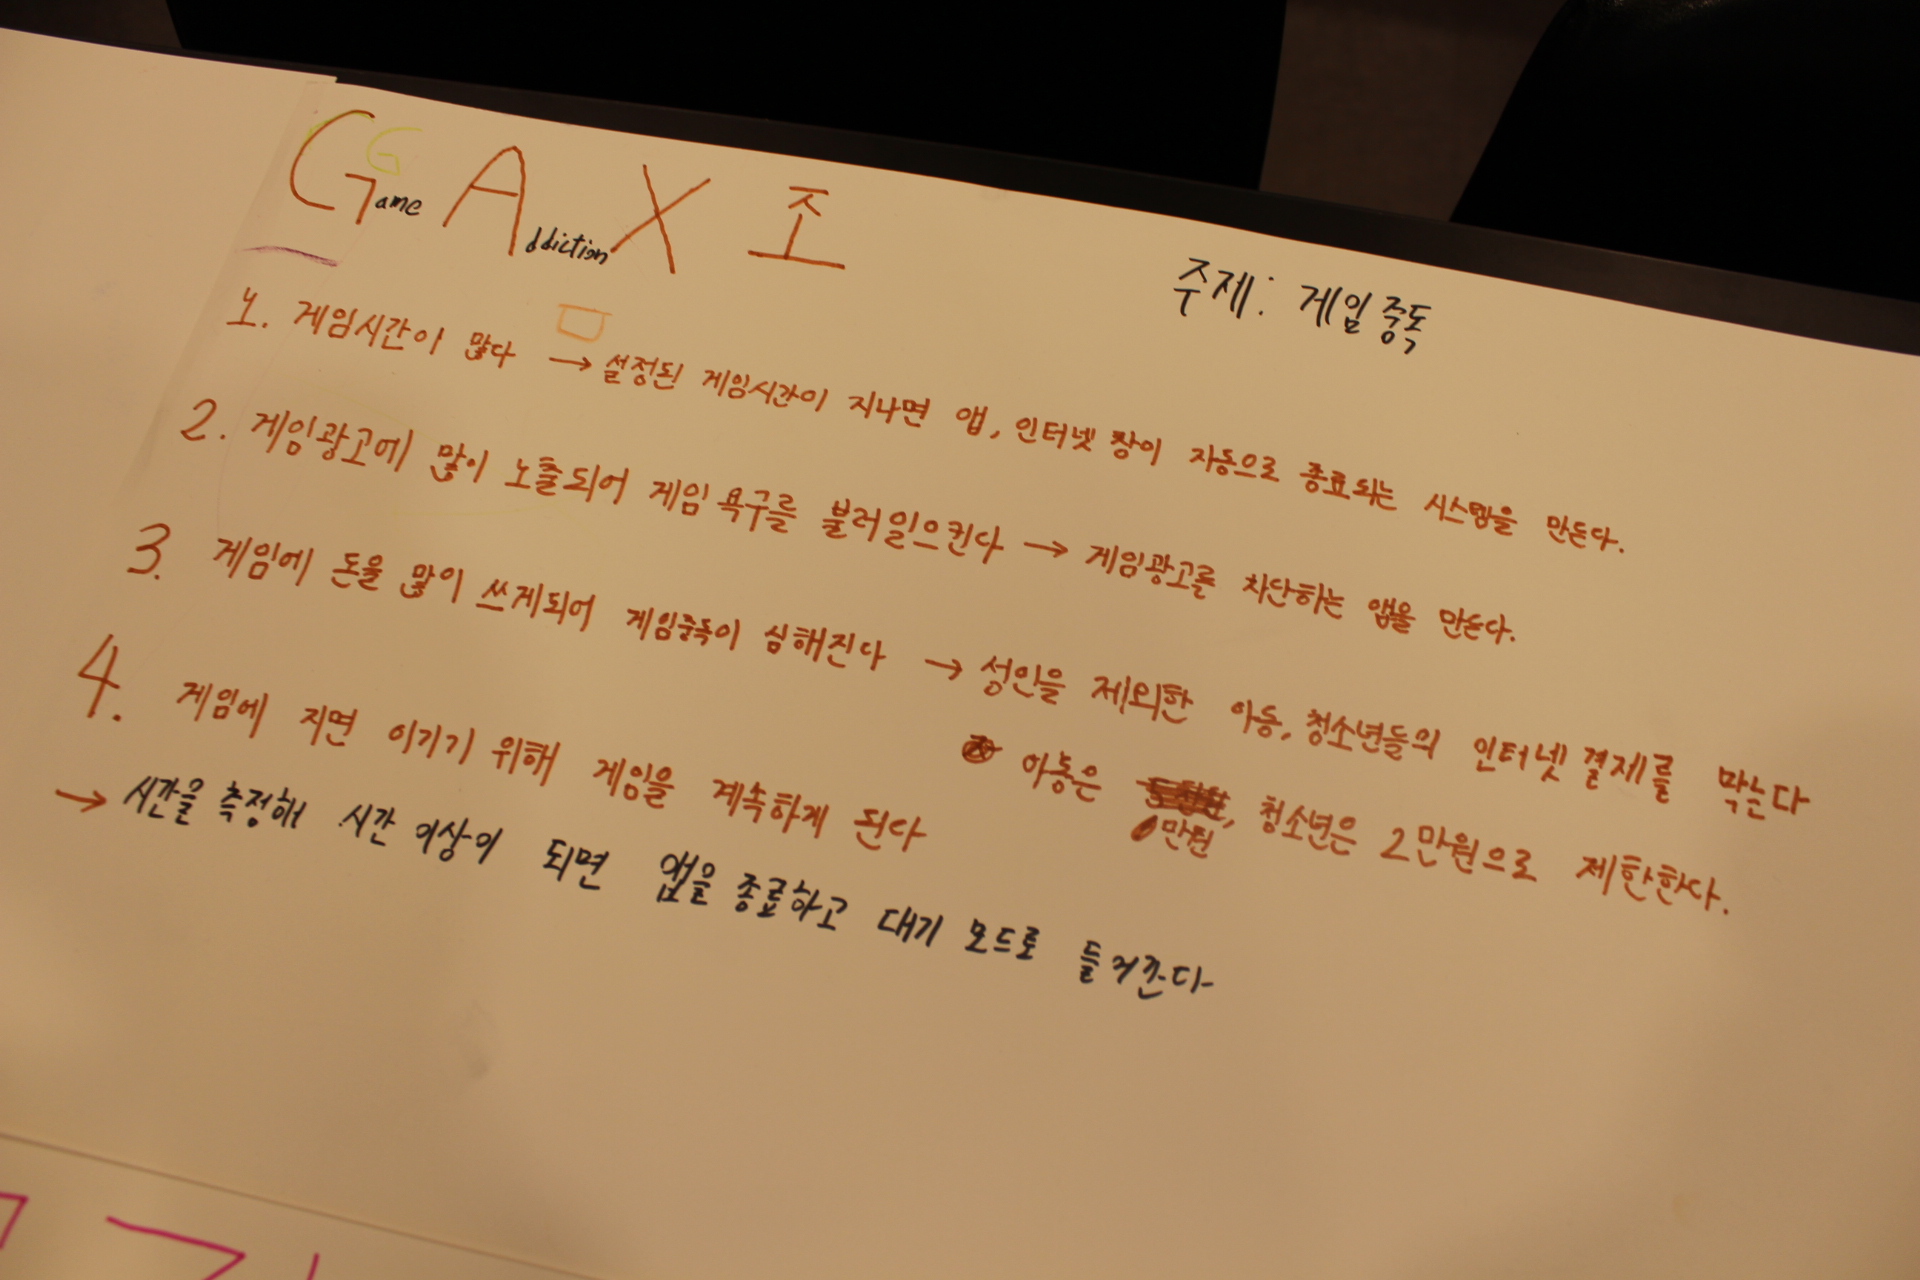 Game Addiction X 조
주제: 게임중독
1. 게임시간이 많다 → 설정된 게임시간이 지나면 앱, 인터넷 창이 자동으로 종료되는 시스템을 만든다.
2. 게임광고에 많이 노출되어 게임 욕구를 불러일으킨다 → 게임광고를 차단하는 앱을 만든다.
3. 게임에 돈을 많이 쓰게되어 게임중독이 심해진다 → 성인을 제외한 아동, 청소년들의 인터넷 결제를 막는다
아동은 만원, 청소년은 2만원으로 제한한다.
4. 게임에 지면 이기기 위해 게임을 계속하게 된다
→ 시간을 측정해 시간 이상이 되면 앱을 종료하고 대기 모드로 들어간다